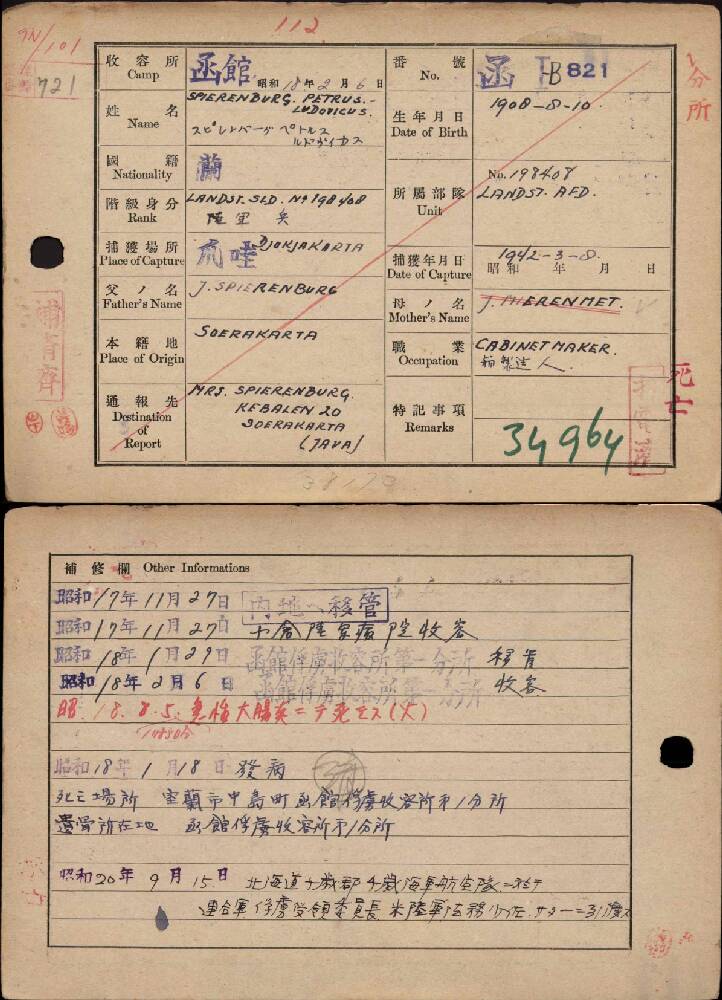 112
9N/101
721
收容所 Camp 函館 昭和18年2月6日
番號 No. 函 I B 821
分所
姓名 Name SPIERENBURG. PETRUS.-
LUDOVICUS.
スピレンバーグ ペトルス
ルドヴイカス
生年月日 Date of Birth 1908-8-10.
國籍 Nationality 蘭
階級身分 Rank LANDST. SLD. No 198408
陸軍 兵
所屬部隊 Unit No. 198408
LANDST. AFD.
捕獲場所 Place of Capture 爪哇 DJOKJAKARTA
捕獲年月日 Date of Capture 1942-3-8.
昭和 年 月 日
父ノ名 Father's Name J. SPIERENBURG
母ノ名 Mother's Name J. MIERENMET.
本籍地 Place of Origin SOERAKARTA
職業 Occupation CABINETMAKER.
箱製造人.
通報先 Destination of Report MRS. SPIERENBURG.
KEBALEN 20
SOERAKARTA
(JAVA)
特記事項 Remarks
34964
死亡
補修欄 Other Informations
昭和17年11月27日 内地へ移管
昭和17年11月27日 小倉陸軍病院収容
昭和18年1月29日 函館俘虜収容所第一分所 移管
昭和18年2月6日 函館俘虜収容所第一分所 収容
昭. 18. 8. 5. 急性大腸炎ニテ死亡ス(火)
昭和18年1月18日 発病
死亡場所 室蘭市中島町函館俘虜收容所第1分所
遺骨所在地 函館俘虜收容所第1分所
昭和20年9月15日 北海道千歳郡千歳海軍航空隊ニ於テ
連合軍俘虜受領委員長 米陸軍法務少佐 サターニ引渡ス